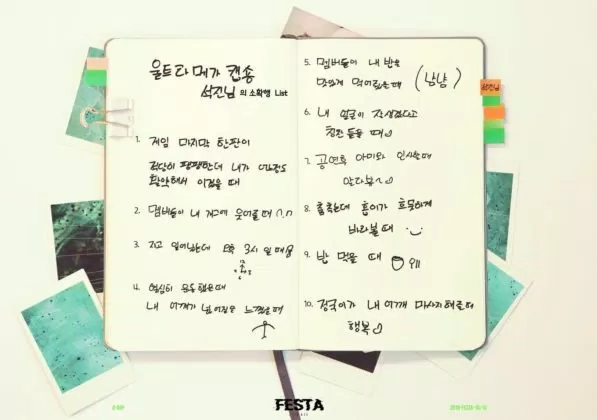 울트라 메가 캡숑
석진님 의 소확행 List
1. 게임 마지막 한판이
적당히 팽팽한데 내가
활약해서 이겼을 때
2. 멤버들이 내 개그에 웃어줄 때 ∩.∩
3. 자고 일어났는데 오후 3시 일 때
4. 열심히 운동 했을때
내 어깨가 넓어짐을 느꼈을 때
5. 멤버들이 내 밥을
맛있게 먹어줬을 때 (냠냠)
6. 내 얼굴이 잘생겼다고
칭찬 들을 때
7. 공연후 아미와 인사할때
안다뇽~
8. 춤추는데 흥이가 흐뭇하게
바라볼 때
9. 밥 먹을 때
10. 정국이가 내 어깨 마사지해줄 때
행복
석진님
FESTA